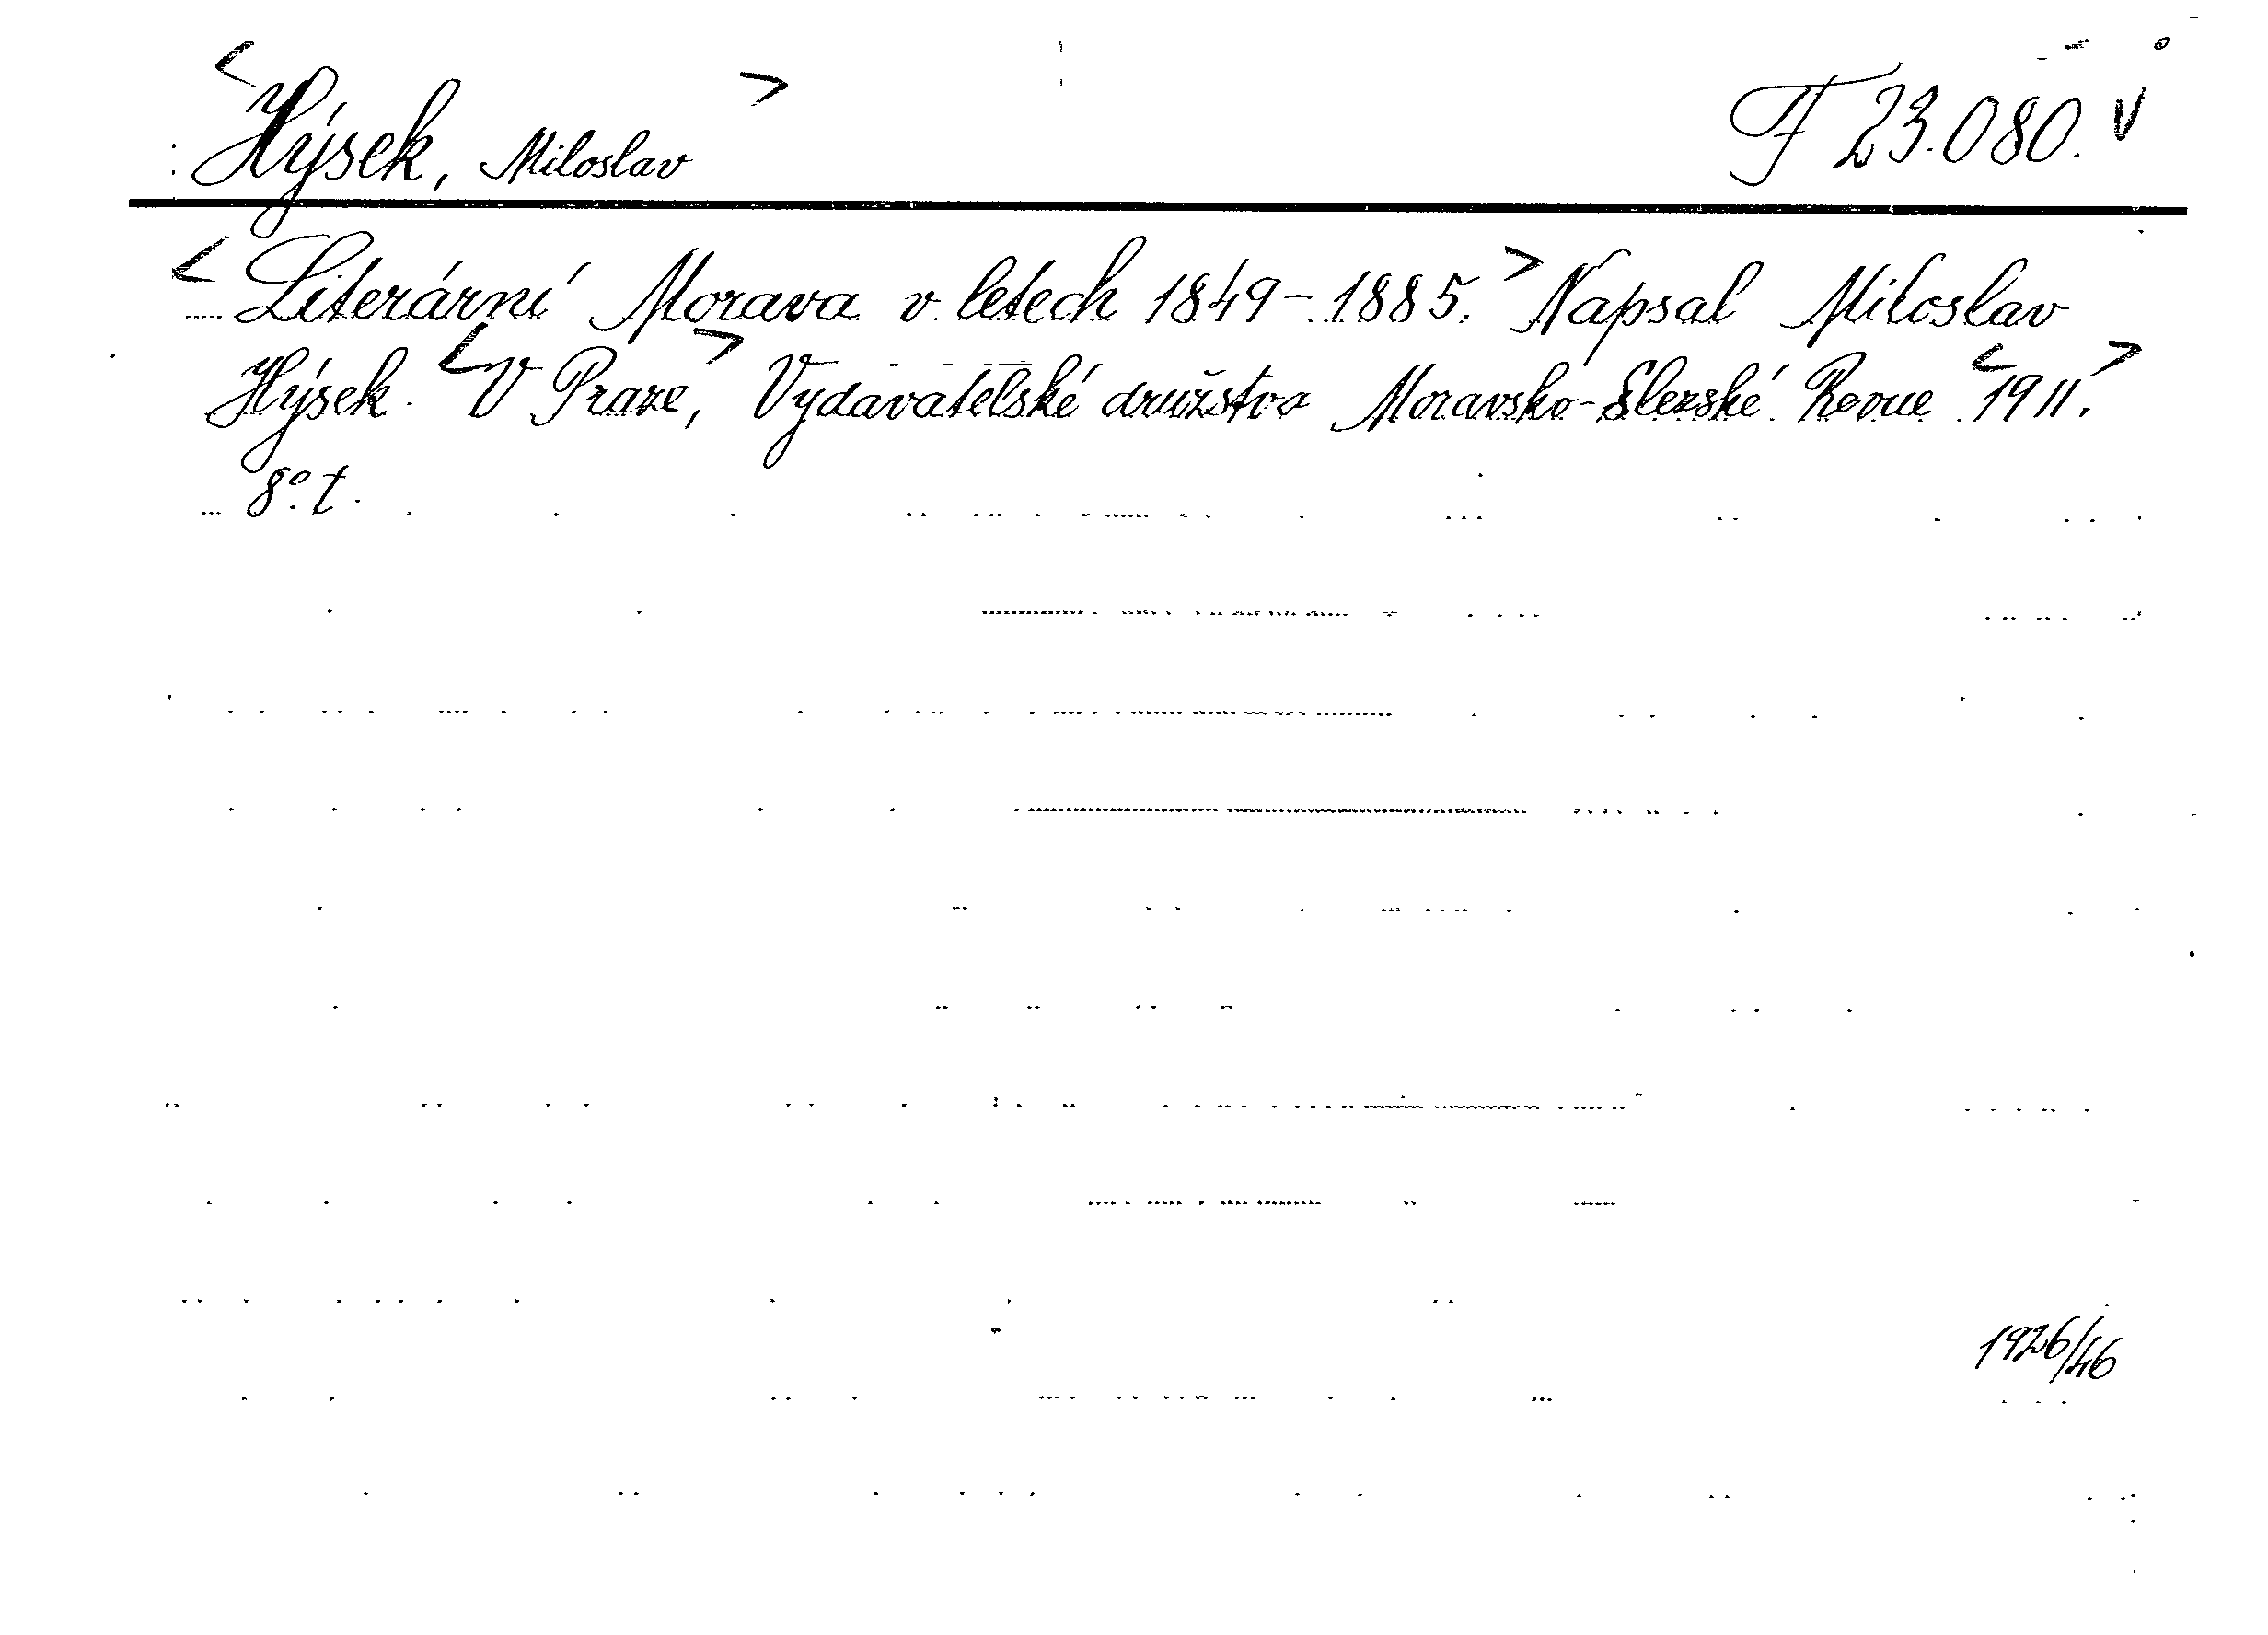 <Hýsek, Miloslav> F 23.080. v
<Literární Morava v letech 1849-1885.> Napsal Miloslav
Hýsek. <V Praze,> Vydavatelské družstvo Moravsko-Slezské Revue <1911.>
8°. t.
1926/46